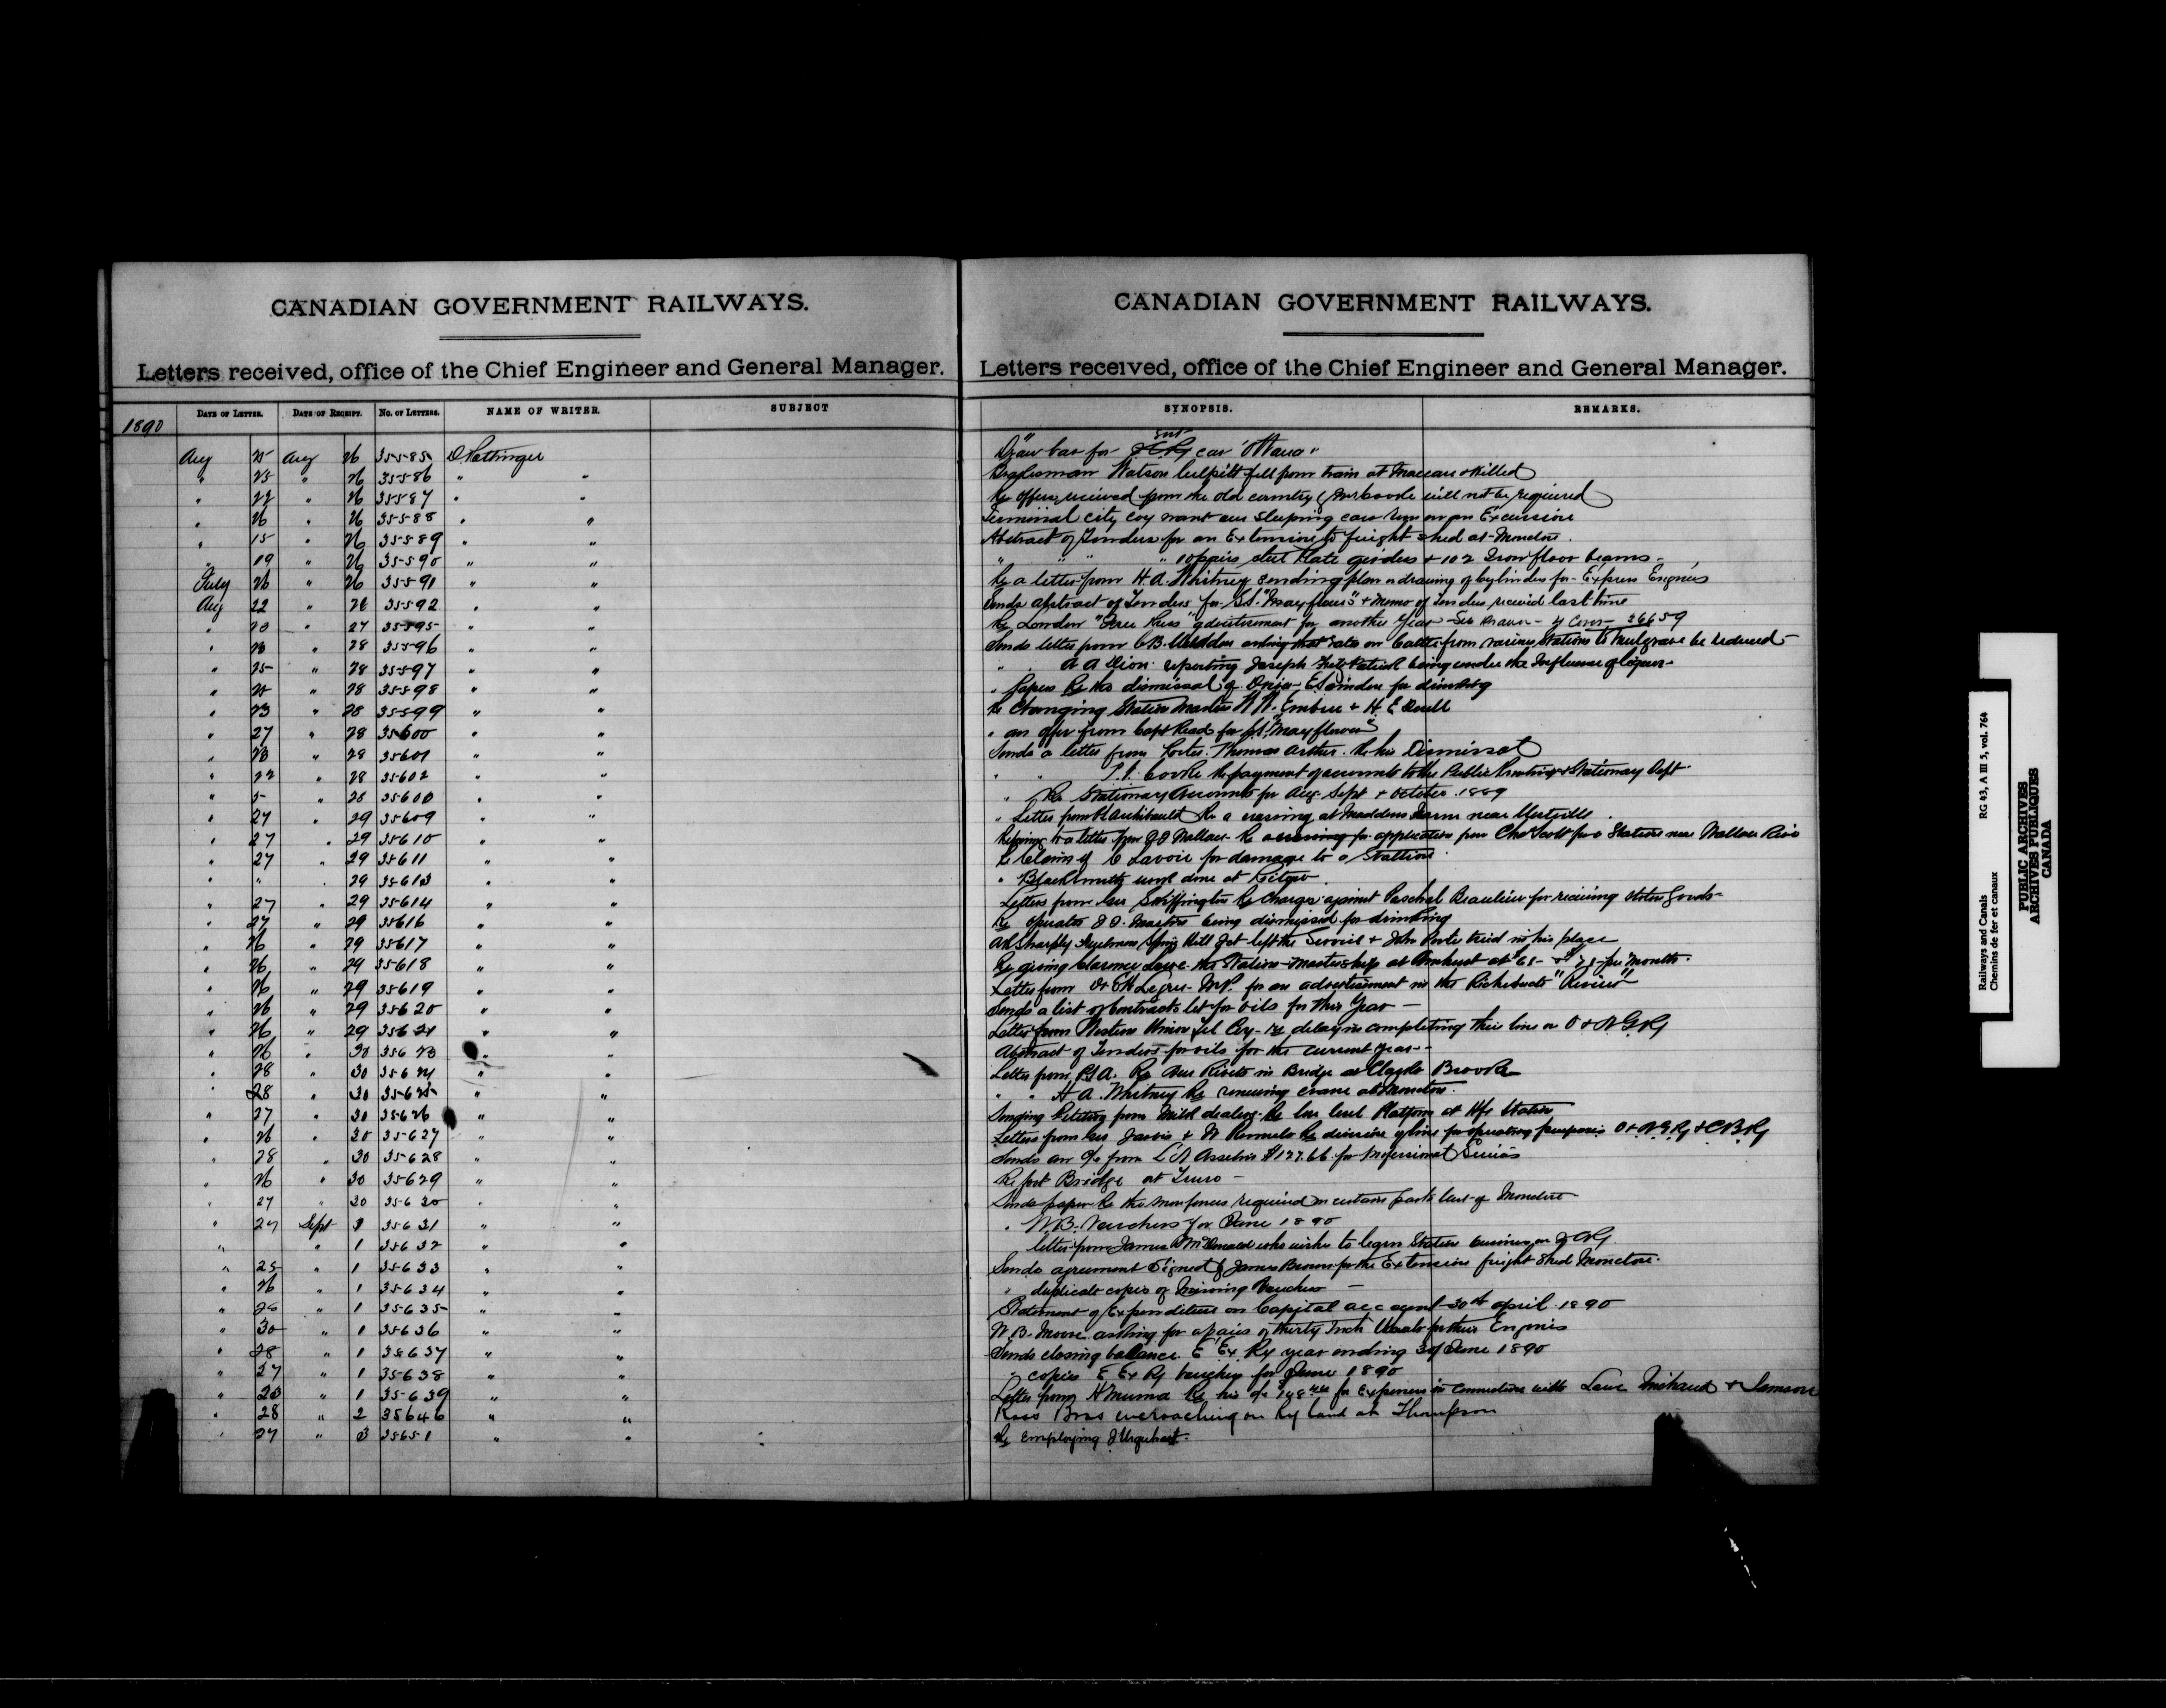 CANADIAN GOVERNMENT RAILWAYS.
Letters received, office of the Chief Engineer and General Manager.
1890 DATE OF LETTER. DATE OF RECEIPT. NO. OF LETTERS. NAME OF WRITER. SUBJECT
Aug 25 Aug 26 35585 D. Pottinger
" 25 " 26 35586 " "
" 22 " 26 35587 " "
" 26 " 26 35588 " "
" 15 " 26 35589 " "
" 19 " 26 35590 " "
July 26 " 26 35591 " "
Aug 22 " 26 35592 " "
" 23 " 27 35595 " "
" 23 " 28 35596 " "
" 25 " 28 35597 " "
" 25 " 28 35598 " "
" 23 " 28 35599 " "
" 27 " 28 35600 " "
" 23 " 28 35601 " "
" 22 " 28 35602 " "
" 5 " 28 35603 " "
" 27 " 29 35609 " "
" 27 " 29 35610 " "
" 27 " 29 35611 " "
" " " 29 35613 " "
" 27 " 29 35614 " "
" 27 " 29 35616 " "
" 26 " 29 35617 " "
" 26 " 29 35618 " "
" 26 " 29 35619 " "
" 26 " 29 35620 " "
" 26 " 29 35621 " "
" 26 " 30 35623 " "
" 28 " 30 35624 " "
" 28 " 30 35625 " "
" 27 " 30 35626 " "
" 26 " 30 35627 " "
" 28 " 30 35628 " "
" 26 " 30 35629 " "
" 27 " 30 35630 " "
" 27 Sept 1 35631 " "
" " 1 35632 " "
" 25 " 1 35633 " "
" 26 " 1 35634 " "
" 26 " 1 35635 " "
" 30 " 1 35636 " "
" 28 " 1 35637 " "
" 27 " 1 35638 " "
" 23 " 1 35639 " "
" 28 " 2 35646 " "
" 27 " 3 35651 " "
CANADIAN GOVERNMENT RAILWAYS.
Letters received, office of the Chief Engineer and General Manager.
SYNOPSIS. REMARKS.
Draw bar for car "Ottawa"
Brakeman Watson Culpitt fell from train at Maccan & killed
Re offers received from the old country will not be required
Terminal city Coy want our sleeping cars run on an Excursion
Abstract of Tenders for an Extension to freight shed at Moncton.
" " " 10 pairs steel plate girders + 102 Iron floor beams
Re a letter from H.A. Whitney sending plan & drawing of cylinders for Express Engines
Sends abstract of Tenders for St. "Mayflower" + memo of Tenders received last time
Re London "Free Press" advertisement for another year 26659
Sends letter from C.B. asking that rate on Cattle from various Stations to Mulgrave be reduced
" A A Dion reporting Joseph Fitzpatrick being under the Influence of liquor
" papers Re the dismissal of for drinking
Re Changing Station Masters Embree + H. E
" an offer from Capt Read for St. "Mayflower"
Sends a letter from Porter Thomas Arthur Re his Dismissal
" " T.V. Cooke Re payment of accounts to the Public Printing & Stationary Dept.
" Re Stationary Accounts for Aug. Sept + October 1889
" Letter from Archibald Re a crossing at Maddens Farm near
Referring to a letter from Wallace Re application from Chas Scott for a Station near Wallace River
Re Claim of C Lavoie for damage to a Stallion
" Blacksmith work done at
Letters from Skeffington Re Charges against Paschal Beaulieu for receiving stolen Goods
Re Operator being dismissed for drinking
Spring Hill Jct left the Service + John Porter tried in his place
Re giving Clarence the Station-mastership at Amherst at per Month.
Letter from M.P. for an advertisement in the Richibucto "Review"
Sends a list of Contracts let for oils for this Year
Letter from Western Union Tel Coy re delay in completing their line on O & N G Ry
Abstract of Tenders for oils for the current year
Letter from P.S.A. Re Rivets in Bridge at Clarks Brook
" " H A Whitney Re removing crane at Moncton.
Petition from Milk dealers Re Platform at Hfx Station
Letters from Jarvis & Re division of line for operating purposes O & N G Ry & C B Ry
Sends an a/c from L A Asselin $127.66 for Professional Services
Re foot Bridge at Truro
Sends papers Re the required on certain parts East of Moncton
" W.B. Vouchers for June 1890
" letter from James McDonald who wishes to learn Station business on I C Ry.
Sends agreement Signed by James Brown for the Extension freight Shed Moncton.
" duplicate copies of Missing Vouchers
Statement of Expenditure on Capital acc 30th April 1890
W.B. Moore asking for a pair of thirty Inch for their Engines
Sends closing balance E Ex Ry year ending 30 June 1890
" copies E Ex Ry vouchers for June 1890
Letter from A Re his a/c for Expenses in connection with Michaud & Samson
Ross Bros encroaching on Ry land at Thompson
Re Employing J Urquhart.
Railways and Canals
Chemins de fer et canaux
RG 43, A III 5, vol. 764
PUBLIC ARCHIVES
ARCHIVES PUBLIQUES
CANADA